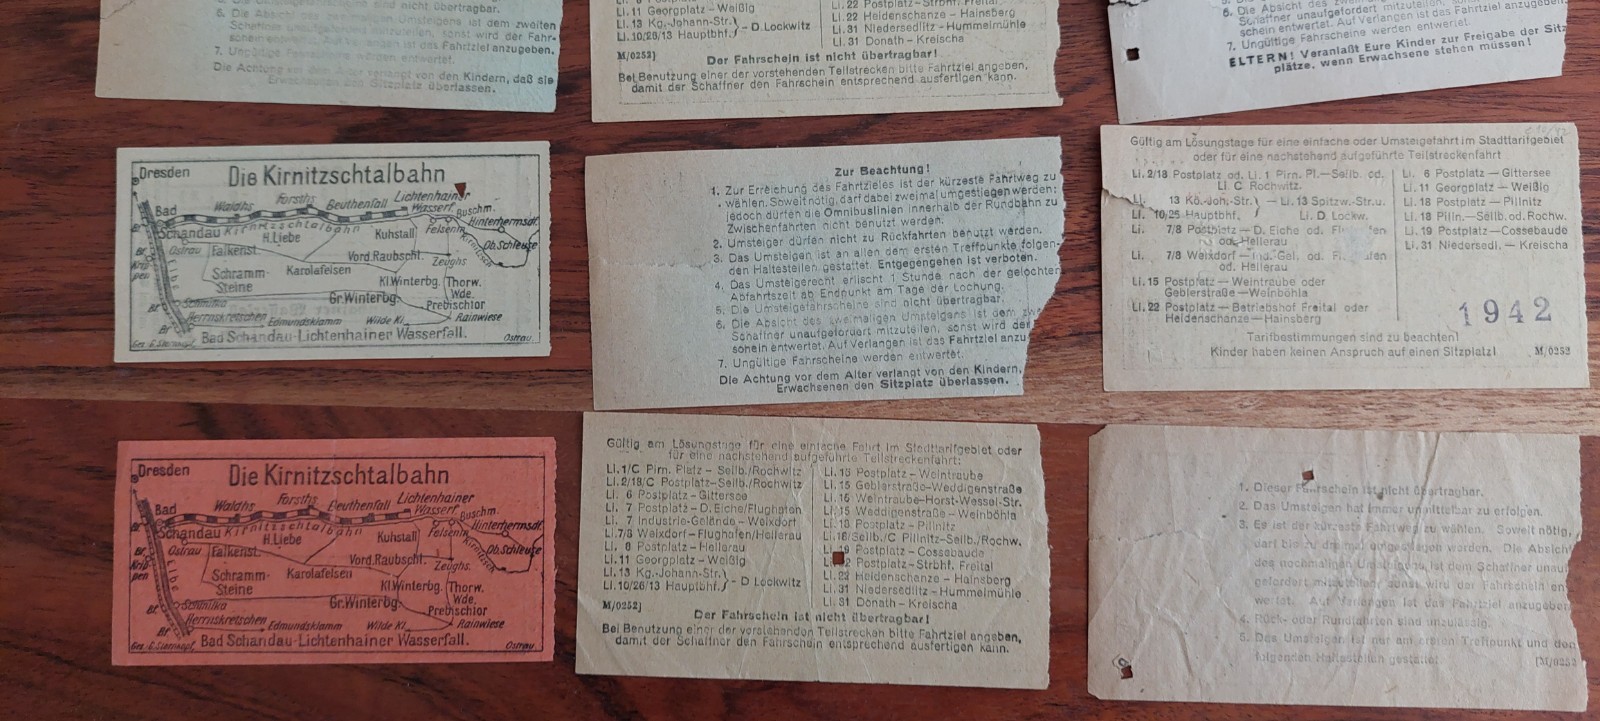 6. Die Absicht des zweimaligen Umsteigens ist dem zweiten
Schaffner unaufgefordert mitzuteilen, sonst wird der Fahr-
schein entwertet. Auf Verlangen ist das Fahrtziel anzugeben.
7. Ungültige Fahrscheine werden entwertet.
Die Achtung vor dem Alter verlangt von den Kindern, daß sie
Erwachsenen den Sitzplatz überlassen.
Li. 11 Georgplatz – Weißig
Li. 13 Kg.-Johann-Str.
Li. 10/26/13 Hauptbhf. } – D. Lockwitz
M/0252]
Li. 22 Postplatz – Strbhf. Freital
Li. 22 Heidenschanze – Hainsberg
Li. 31 Niedersedlitz – Hummelmühle
Li. 31 Donath – Kreischa
Der Fahrschein ist nicht übertragbar!
Bei Benutzung einer der vorstehenden Teilstrecken bitte Fahrtziel angeben,
damit der Schaffner den Fahrschein entsprechend ausfertigen kann.
6. Die Absicht des
Schaffner unaufgefordert mitzuteilen,
schein entwertet. Auf Verlangen ist das Fahrtziel anzugeben.
7. Ungültige Fahrscheine werden entwertet.
ELTERN! Veranlaßt Eure Kinder zur Freigabe der Sitz-
plätze, wenn Erwachsene stehen müssen!
Dresden
Die Kirnitzschtalbahn
Bad
Schandau
Waldhs
Forsths
Beuthenfall
Lichtenhainer
Wasserf.
Buschm.
Hinterhermsdf.
Kirnitzschtalbahn
Ostrau
Falkenst.
H.Liebe
Kuhstall
Felsenm.
Kirnitzsch
Ob.Schleuse
Vord.Raubschl.
Zeughs
Elbe
Schramm-
Steine
Karolafelsen
Kl.Winterbg.
Thorw.
Wde.
Gr.Winterbg.
Prebischtor
Schmilka
Herrnskretschen
Edmundsklamm
Wilde Kl.
Rainwiese
Bad Schandau-Lichtenhainer Wasserfall.
Ostrau.
Zur Beachtung!
1. Zur Erreichung des Fahrtzieles ist der kürzeste Fahrtweg zu
wählen. Soweit nötig, darf dabei zweimal umgestiegen werden;
jedoch dürfen die Omnibuslinien innerhalb der Rundbahn zu
Zwischenfahrten nicht benutzt werden.
2. Umsteiger dürfen nicht zu Rückfahrten benutzt werden.
3. Das Umsteigen ist an allen dem ersten Treffpunkte folgen-
den Haltestellen gestattet. Entgegengehen ist verboten.
4. Das Umsteigerecht erlischt 1 Stunde nach der gelochten
Abfahrtszeit ab Endpunkt am Tage der Lochung.
5. Die Umsteigefahrscheine sind nicht übertragbar.
6. Die Absicht des zweimaligen Umsteigens ist dem zwe
Schaffner unaufgefordert mitzuteilen, sonst wird der
schein entwertet. Auf Verlangen ist das Fahrtziel anzu
7. Ungültige Fahrscheine werden entwertet.
Die Achtung vor dem Alter verlangt von den Kindern,
Erwachsenen den Sitzplatz überlassen.
Gültig am Lösungstage für eine einfache oder Umsteigefahrt im Stadttarifgebiet
oder für eine nachstehend aufgeführte Teilstreckenfahrt
Li. 2/18 Postplatz od. Li. 1 Pirn. Pl.—Sellb. od.
Li. C Rochwitz.
13 Kö.-Joh.-Str. } — Li. 13 Spitzw.-Str. u.
Li. 10,25 Hauptbhf. Li. D Lockw.
Li. 7/8 Postplatz — D. Eiche od. Flughafen
od. Hellerau
Li. 7/8 Weixdorf — Ind.-Gel. od. Flughafen
od. Hellerau
Li. 15 Postplatz — Weintraube oder
Geblerstraße — Weinböhla
Li. 22 Postplatz — Betriebshof Freital oder
Heidenschanze — Hainsberg
Li. 6 Postplatz — Gittersee
Li. 11 Georgplatz — Weißig
Li. 18 Postplatz — Pillnitz
Li. 18 Pilln.—Sellb. od. Rochw.
Li. 19 Postplatz — Cossebaude
Li. 31 Niedersedl. — Kreischa
1942
Tarifbestimmungen sind zu beachten!
Kinder haben keinen Anspruch auf einen Sitzplatz! M/0252
Dresden
Die Kirnitzschtalbahn
Bad
Schandau
Waldhs
Forsths
Beuthenfall
Lichtenhainer
Wasserf.
Buschm.
Hinterhermsdf.
Kirnitzschtalbahn
Ostrau
Falkenst.
H.Liebe
Kuhstall
Felsenm.
Kirnitzsch
Ob.Schleuse
Vord.Raubschl.
Zeughs.
Elbe
Schramm-
Steine
Karolafelsen
Kl.Winterbg.
Thorw.
Wde.
Gr.Winterbg.
Prebischtor
Schmilka
Herrnskretschen
Edmundsklamm
Wilde Kl.
Rainwiese
Bad Schandau-Lichtenhainer Wasserfall.
Ostrau.
Gültig am Lösungstage für eine einfache Fahrt im Stadttarifgebiet oder
für eine nachstehend aufgeführte Teilstreckenfahrt:
Li. 1/C Pirn. Platz – Sellb./Rochwitz
Li. 2/18/C Postplatz–Sellb./Rochwitz
Li. 6 Postplatz – Gittersee
Li. 7 Postplatz – D. Eiche/Flughafen
Li. 7 Industrie-Gelände – Weixdorf
Li. 7/8 Weixdorf – Flughafen/Hellerau
Li. 8 Postplatz – Hellerau
Li. 11 Georgplatz – Weißig
Li. 13 Kg.-Johann-Str.
Li. 10/26/13 Hauptbhf. } – D Lockwitz
M/0252]
Li. 15 Postplatz – Weintraube
Li. 15 Geblerstraße–Weddigenstraße
Li. 15 Weintraube-Horst-Wessel-Str.
Li. 15 Weddigenstraße – Weinböhla
Li. 18 Postplatz – Pillnitz
Li. 18/Sellb./C Pillnitz–Sellb./Rochw.
Li. 19 Postplatz – Cossebaude
Postplatz – Strbhf. Freital
Li. 22 Heidenschanze – Hainsberg
Li. 31 Niedersedlitz – Hummelmühle
Li. 31 Donath – Kreischa
Der Fahrschein ist nicht übertragbar!
Bei Benutzung einer der vorstehenden Teilstrecken bitte Fahrtziel angeben,
damit der Schaffner den Fahrschein entsprechend ausfertigen kann.
1. Dieser Fahrschein ist nicht übertragbar.
2. Das Umsteigen hat immer unmittelbar zu erfolgen.
3. Es ist der kürzeste Fahrtweg zu wählen. Soweit nötig,
darf bis zu dreimal umgestiegen werden. Die Absicht
des nochmaligen Umsteigens ist dem Schaffner unauf
gefordert mitzuteilen, sonst wird der Fahrschein en
wertet. Auf Verlangen ist das Fahrtziel anzugeben
4. Rück- oder Rundfahrten sind unzulässig.
5. Das Umsteigen ist nur am ersten Treffpunkt und den
folgenden Haltestellen gestattet. [M/0252